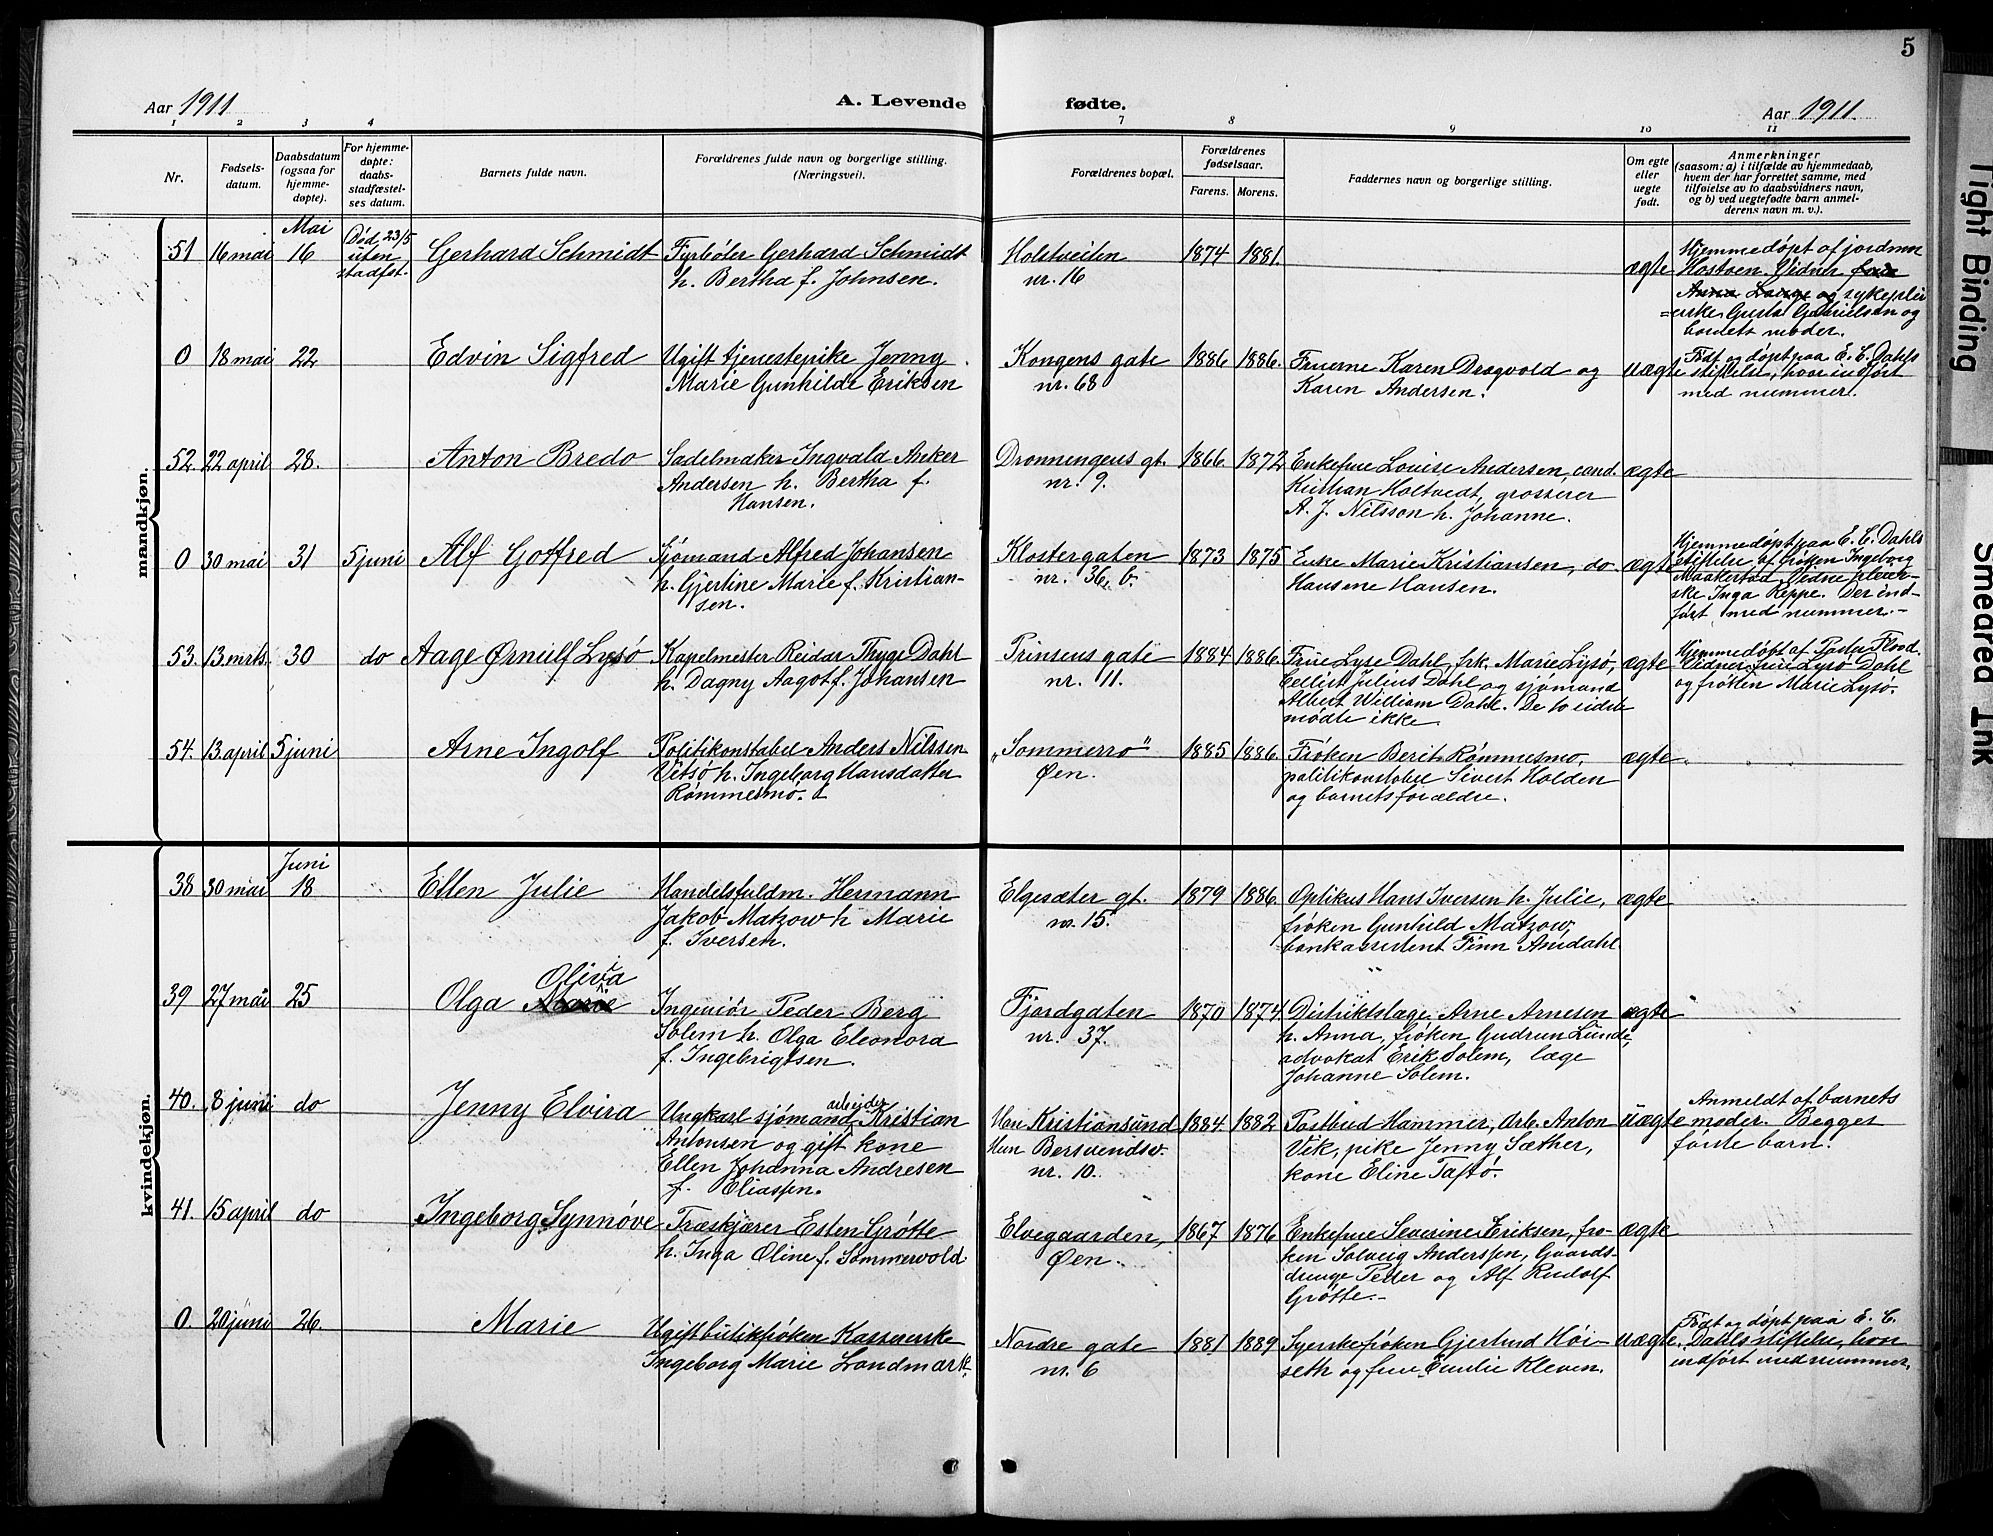 5
Aar 1911
A. Levende
fødte.
Aar 1911.
1 2 3 4 7 8 9 10 11
Nr.
Fødsels-
datum.
Daabsdatum
(ogsaa for
hjemme-
døpte).
For hjemme-
døpte:
daabs-
stadfæstel-
ses datum.
Barnets fulde navn.
Forældrenes fulde navn og borgerlige stilling.
(Næringsvei).
Forældrenes bopæl.
Forældrenes
fødselsaar.
Farens. Morens.
Faddernes navn og borgerlige stilling.
Om egte
eller
uegte
født.
Anmerkninger
(saasom: a) i tilfælde av hjemmedaab,
hvem der har forrettet samme, med
tilføielse av to daabsvidners navn,
og b) ved uegtefødte barn anmel-
derens navn m. v.).
mandkjøn.
51 16 mai Mai 16 Død 23/5
uten
stadfest.
Gerhard Schmidt
Fyrbøter Gerhard Schmidt
h. Bertha f. Johnsen.
Holstveiten
nr. 16
1874 1881.
ægte
Hjemmedøpt af jordmor
Hostven. Vidner
Anna Lange og sykeplei
=erske Gusta Gabrielsen og
barnets moder.
0 18 mai 22
Edvin Sigfred
Ugift tjenestepike Jenny
Marie Gunhilde Eriksen
Kongens gate
nr. 68
1886 1886.
Fruerne Karen Dragvold og
Karen Andersen.
uægte
Født og døpt paa E. C. Dahls
stiftelse, hvor indført
med nummer.
52. 22 april 28.
Anton Bredo
Sadelmaker Ingvald Anker
Andersen h. Bertha f.
Hansen.
Dronningens gt.
nr. 9.
1866 1872
Enkefrue Louise Andersen, cand.
Kristian Holtvedt, grosserer
A. J. Nilsson h. Johanne.
ægte
0 30 mai 31 5 juni
Alf Goffred
Sjømand Alfred Johansen
h. Gjertine Marie f. Kristian-
sen.
Klostergaten
nr. 36, b.
1873 1875
Enke Marie Kristiansen, do
Hansine Hansen.
ægte
Hjemmedøpt paa E. C. Dahls
stiftelse af frøken Ingeborg
Maakestad. Vidne pleier-
ske Inga Reppe. Der ind-
ført med nummer.-
53. 13. mrts. 30 do
Aage Ørnulf Lysø
Kapelmester Reidar Thyge Dahl
h. Dagny Aagot f. Johansen
Prinsens gate
nr. 11.
1884 1886.
Frue Lyse Dahl, frk. Marie Lysø,
Cellist Julius Dahl og sjømand
Albert William Dahl. De to sidste
mødte ikke
ægte
Hjemmedøbt af Pastor Flood.
Vidner frue Lysø Dahl
og frøken Marie Lysø.
54. 13. april 5 juni
Arne Ingolf
Politikonstabel Anders Nilssen
Vitsø h. Ingeborg Hansdatter
Rømmesmo.
„Sommerro"
Øen.
1885 1886.
Frøken Berit Rømmesmo,
politikonstabel Sivert Holden
og barnets forældre.
ægte.
kvindekjøn.
38 30 mai Juni 18
Ellen Julie
Handelsfuldm. Hermann
Jakob Matzow h Marie
f. Iversen.
Elgesæter gt.
nr. 15.
1879 1886.
Optikus Hans Iversen h. Julie,
frøken Gunhild Matzow,
bankassistent Finn Amdahl
ægte
39 27 mai 25
Olga Marie Olivia
Ingeniør Peder Berg
Solem h. Olga Eleonora
f. Ingebrigtsen.
Fjordgaten
nr. 37.
1870 1874.
Distriktslæge Arne Arnesen
h. Anna, frøken Gudrun Lunde,
advokat Erik Solem, læge
Johanne Solem.
ægte
40. 8 juni do
Jenny Elvira
Ungkarl sjømand arbejder Kristian
Antonsen og gift kone
Ellen Johanna Andresen
f. Eliassen.
Han Kristiansund
Hun Bersvendsv.
nr. 10.
1884 1882
Postbud Hammer, Arb. Anton
Vik, pike Jenny Sæther,
kone Eline Taftø.
uægte
Anmeldt af barnets
moder. Begges
første barn.
41. 15 april do
Ingeborg Synnøve
Træskjærer Esten Grøtte
h. Inga Oline f. Sommervold.
Elvegaarden,
Øen.
1867 1876
Enkefrue Severine Eriksen, frø-
ken Solveig Anderssen, Gaards-
drenge Peder og Alf Rudolf
Grøtte.-
ægte
0. 20 juni 26.
Marie
Ugift butikfrøken Kassererske
Ingeborg Marie Landmark.
Nordre gate
nr. 6
1881 1889
Syerske frøken Gjertrud Høi-
seth og frue Emilie Kleven.
uægte.
Født og døpt paa E. C.
Dahls stiftelse, hvor
indført med nummer.
Tight Binding
Smeared Ink